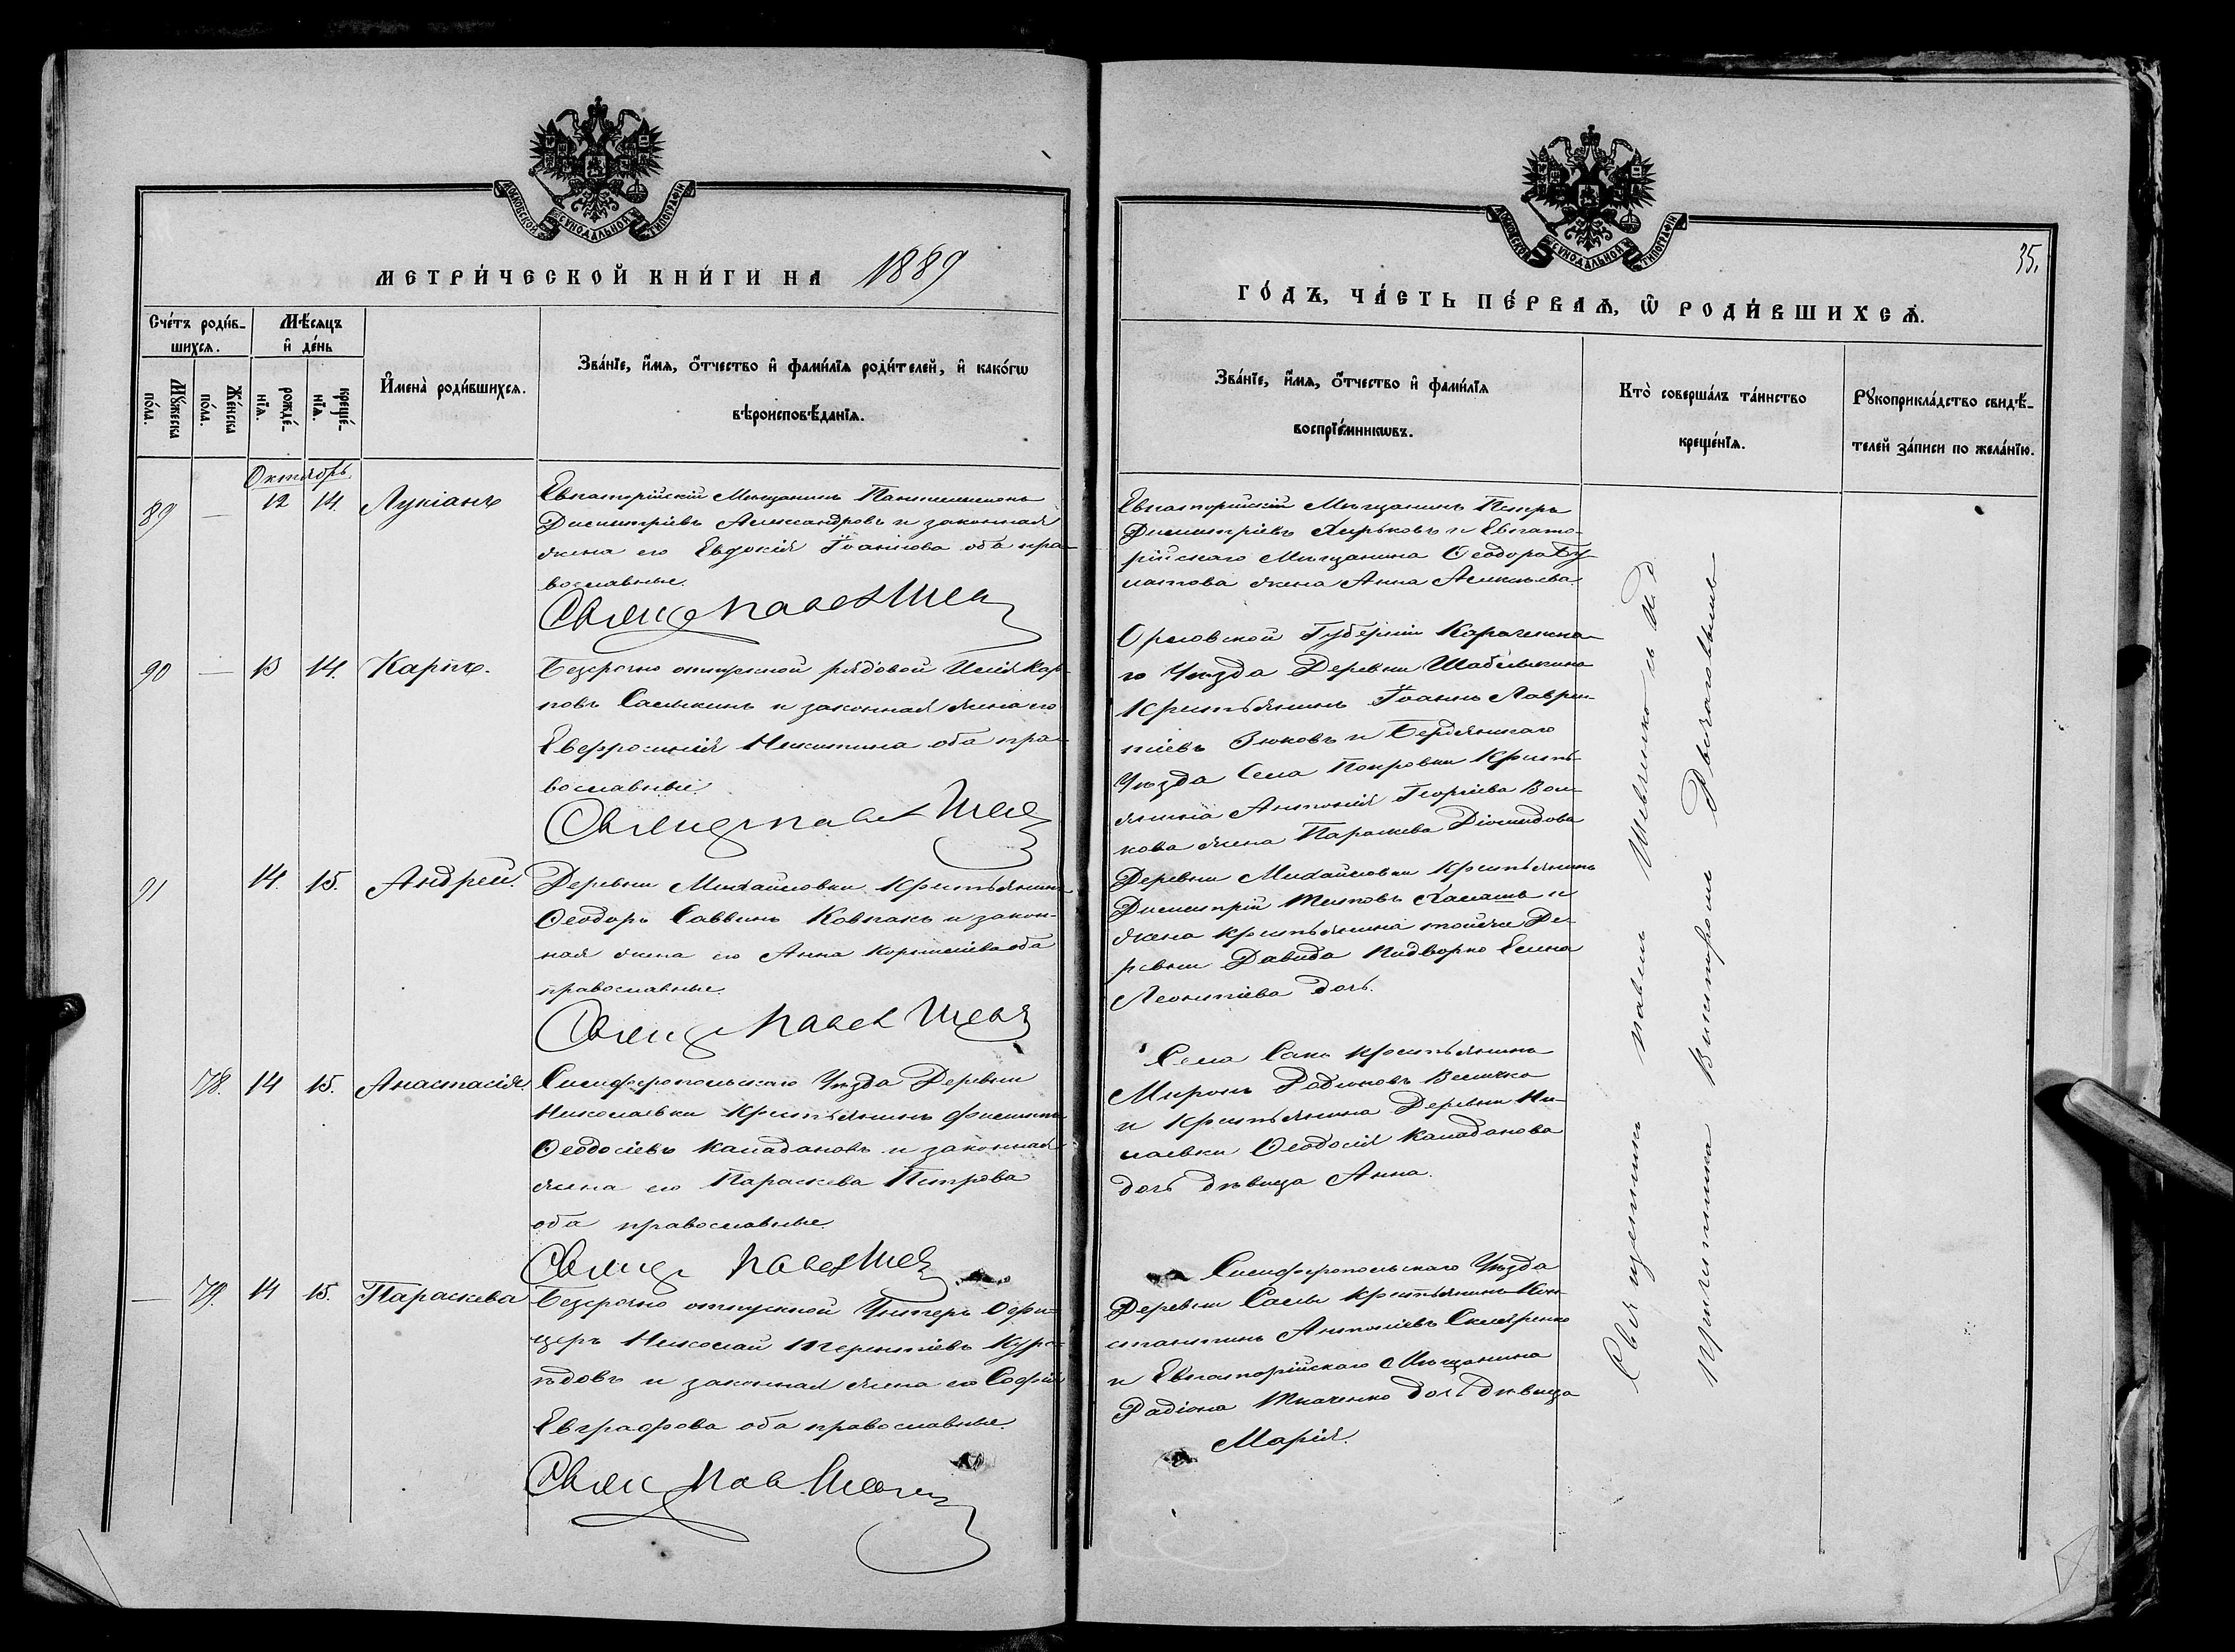 МОСКОВСКОЙ СУНОДАЛЬНОЙ ТИПОГРАФІИ
МЕТРИ́ЧЕСКОЙ КНИ́ГИ НА 1889
Сче́тъ роди́в-
шихсѧ.
Мѣ́сяцъ
и҆ де́нь
Мꙋ́жеска
по́ла.
Же́нска
по́ла.
рожде́-
нїѧ.
креще́-
нїѧ.
И҆мена̀ роди́вшихсѧ.
Зва́нїе, и҆́мѧ, ѻ҆́тчество и҆ фами́лїѧ роди́телей, и҆ како́гѡ
вѣроисповѣ́данїѧ.
Октябрь
89 — 12 14. Лукіанъ
Евпаторійскій Мѣщанинъ Пантелеимонъ
Димитріевъ Александровъ и законная
жена его Евдокія Іоаннова оба пра-
вославные.
Священ Павел Шев
90 — 13 14. Карпъ.
Безсрочно отпускной рядовой Илія Кар-
повъ Салыкинъ и законная жена его
Евфросинія Никитина оба пра-
вославные.
Священ Павел Шев
91 14. 15. Андрей.
Деревни Михайловки Крестьянинъ
Ѳеодоръ Саввинъ Ковпакъ и закон-
ная жена его Анна Корнилиева оба
православные.
Священ Павел Шев
78. 14 15. Анастасія
Симферопольскаго Уѣзда Деревни
Николаевки Крестьянинъ Филиппъ
Ѳеодосіевъ Каладановъ и законная
жена его Параскева Петрова
оба православные.
Священ Павел Шев
— 79. 14 15. Параскева
Безсрочно отпускной Унтеръ Офи-
церъ Николай Терентіевъ
и законная жена его Софія
Евграфова оба православные.
Свящ Пав. Шевч
МОСКОВСКОЙ СУНОДАЛЬНОЙ ТИПОГРАФІИ
35.
ГО́ДЪ, ЧА́СТЬ ПЕ́РВАѦ, Ѡ҆ РОДИ́ВШИХСѦ.
Зва́нїе, и҆́мѧ, ѻ҆́тчество и҆ фами́лїѧ
воспрїе́мникѡвъ.
Кто̀ соверша́лъ та́инство
креще́нїѧ.
Рꙋкоприкла́дство свидѣ́-
телей за́писи по жела́нїю.
Евпаторийскій Мѣщанинъ Петръ
Димитріевъ Хирьковъ и Евпато-
рійскаго Мѣщанина Ѳеодора Бу-
латова жена Анна Алексѣева.
Орловской Губерніи Карачевска-
го Уѣзда Деревни Шабелькина
Крестьянинъ Іоаннъ Лаврен-
тіевъ Зюковъ и Бердянскаго
Уѣзда Села Покровки Кресть-
янина Антонія Георгіева Вол-
кова жена Параскева Діомидова
Деревни Михайловки Крестьянинъ
Димитрій Титовъ Халашъ и
жена крестьянина тойже Де-
ревни Давида Пидворко Елена
Леонтіева дочь.
Села Саки Крестьянинъ
Миронъ Радіоновъ Величко
и Крестьянина Деревни Ни-
лаевки Ѳеодосія Каладанова
дочь дѣвица Анна.
Симферопольскаго Уѣзда
Деревни Саблы Крестьянинъ Кон-
стантинъ Антоніевъ Скляренко
и Евпаторійскаго Мѣщанина
Радіона Ткаченко дочь дѣвица
Марія.
Священникъ Павелъ Шевченко съ и. д
причетника Виктором Дьяговскимъ